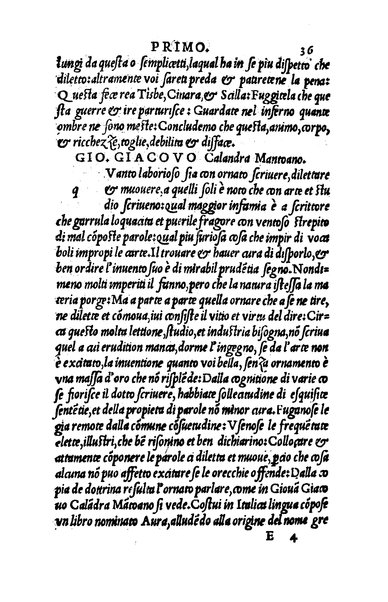 PRIMO. 36
lungi da questa o semplicetti, laqual ha in se piu dispetto che
diletto: altramente voi sareti preda & patiretene la pena:
Questa fece rea Tisbe, Cinara, & Scilla: Fuggitela che que
sta guerre & ire parturisce: Guardate nel inferno quante
ombre ne sono meste: Concludemo che questa, animo, corpo,
& ricchezze, toglie, debilita & disface.
GIO. GIACOVO Calandra Mantoano.
q Vanto laborioso sia con ornato scriuere, dilettare
& muouere, a quelli soli è noto che con arte et stu
dio scriueno: qual maggior infamia è a scrittore
che garrula loquacita et puerile fragore con ventoso strepito
di mal cõposte parole: qual piu furiosa cosa che impir di voca
boli impropi le carte. Il trouare & hauer cura di disporlo, &
ben ordire l'inuento suo è di mirabil prudẽtia segno. Nondi=
meno molti imperiti il fanno, pero che la natura istessa la ma
teria porge: Ma a parte a parte quella ornare che a se ne tire,
ne dilette et cõmoua, iui cõsiste il vitio et virtu del dire: Cir=
ca questo molta lettione, studio, et industria bisogna, nõ scriua
quel a cui erudition manca, dorme l'ingegno, se da l'arte non
è excitato, la inuentione quanto voi bella, senza ornamento è
vna massa d'oro che nõ risplẽde: Dalla cognitione di varie co
se fiorisce il dotto scriuere, habbiate sollecitudine di esquisite
sentẽtie, et della propieta di parole nõ minor cura. Fuganose le
gia remote dalla cõmune cõsuetudine: Vsenose le frequẽtate
elette, illustri, che bẽ risonino et ben dichiarino: Collocare &
attamente cõponere le parole ci diletta et muoue, pcio che cosa
alcuna nõ puo affetto excitare se le orecchie offende: Dalla co
pia de dottrina resulta l'ornato parlare, come in Giouã Giaco
uo Calãdra Mãtoano si vede. Costui in Italica lingua cõpose
vn libro nominato Aura, alludẽdo alla origine del nome gre
E 4